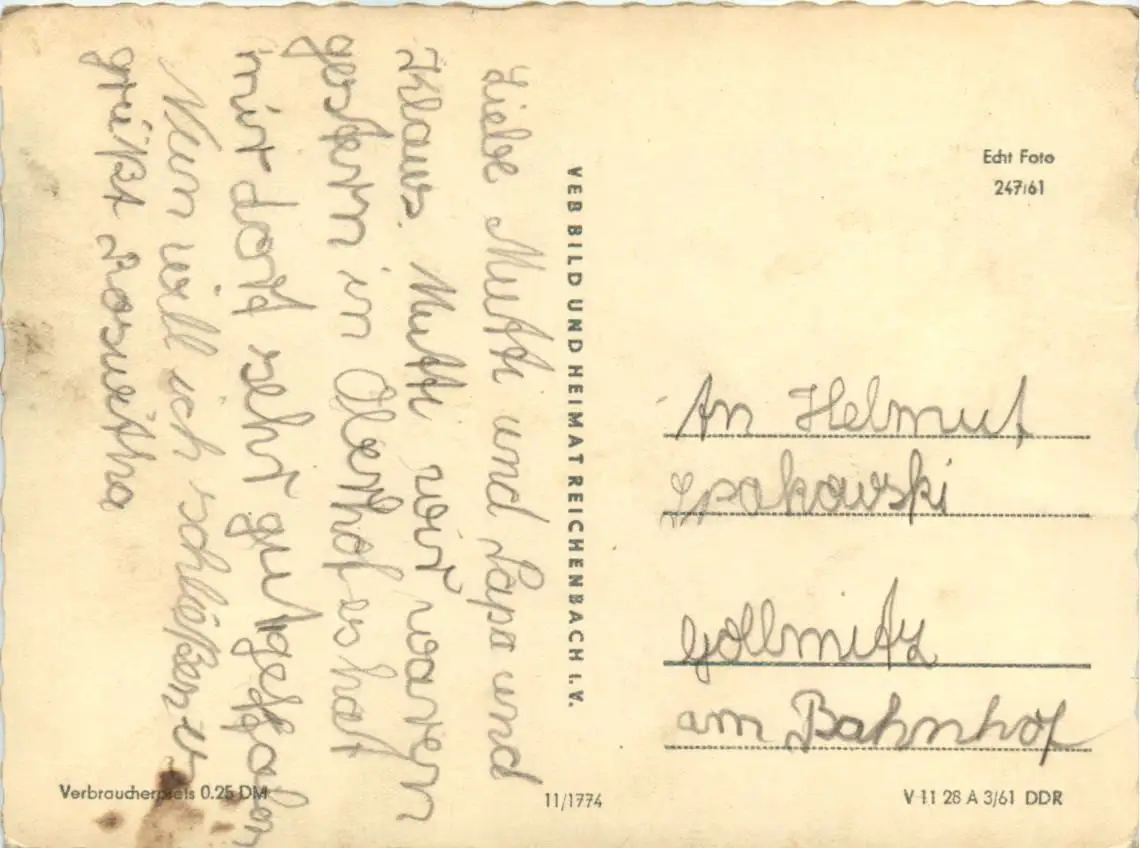 Liebe Mutti und Papa und
Klaus. Mutti wir waren
gestern in Oberhof es hat
mir dort sehr gut geffallen
Nun will ich schleßen u
grüßt Roswitha
VEB BILD UND HEIMAT REICHENBACH I. V.
Echt Foto
247/61
An Helmut
Spakowski
Gollmitz
am Bahnhof
Verbraucherpreis 0.25 DM
11/1774
V 11 28 A 3/61 DDR